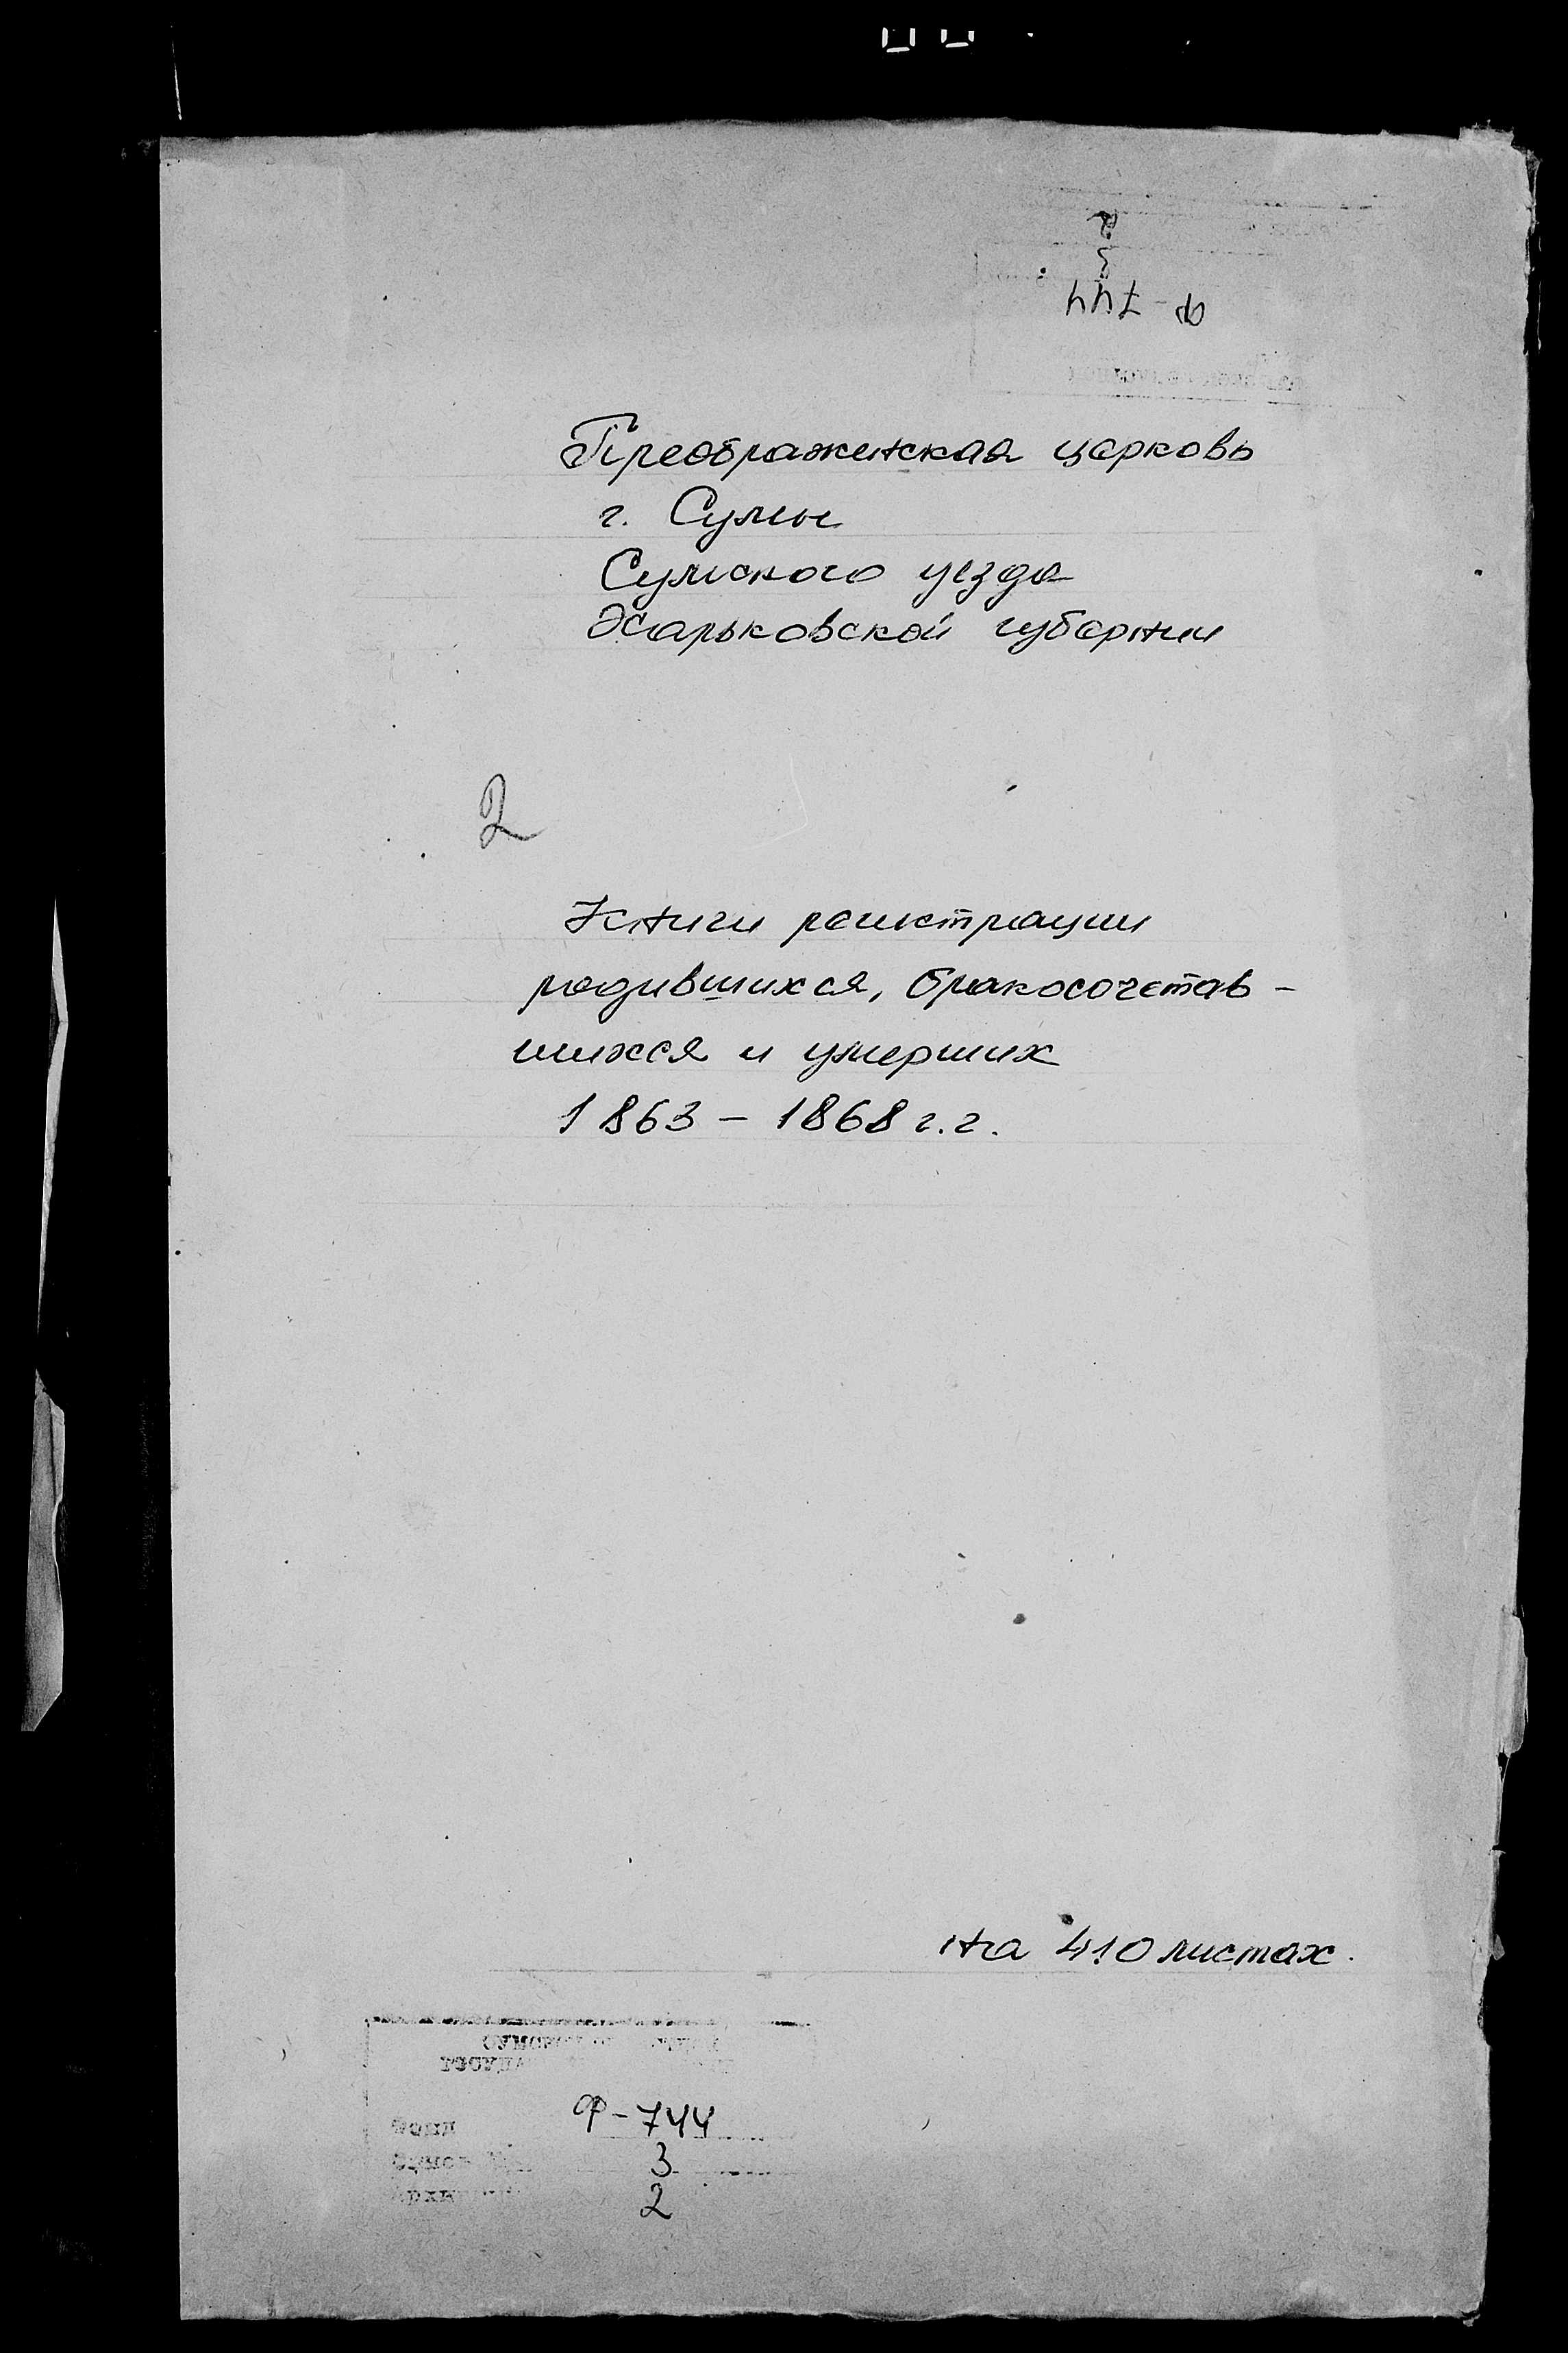 Ф-744
3
2
Преображенская церковь
г. Сумы
Сумского уезда
Харьковской губернии
2
Книги регистрации
родившихся, бракосочетав-
шихся и умерших
1863 – 1868 г.г.
на 410 листах.
Фонд Ф-744
3
2